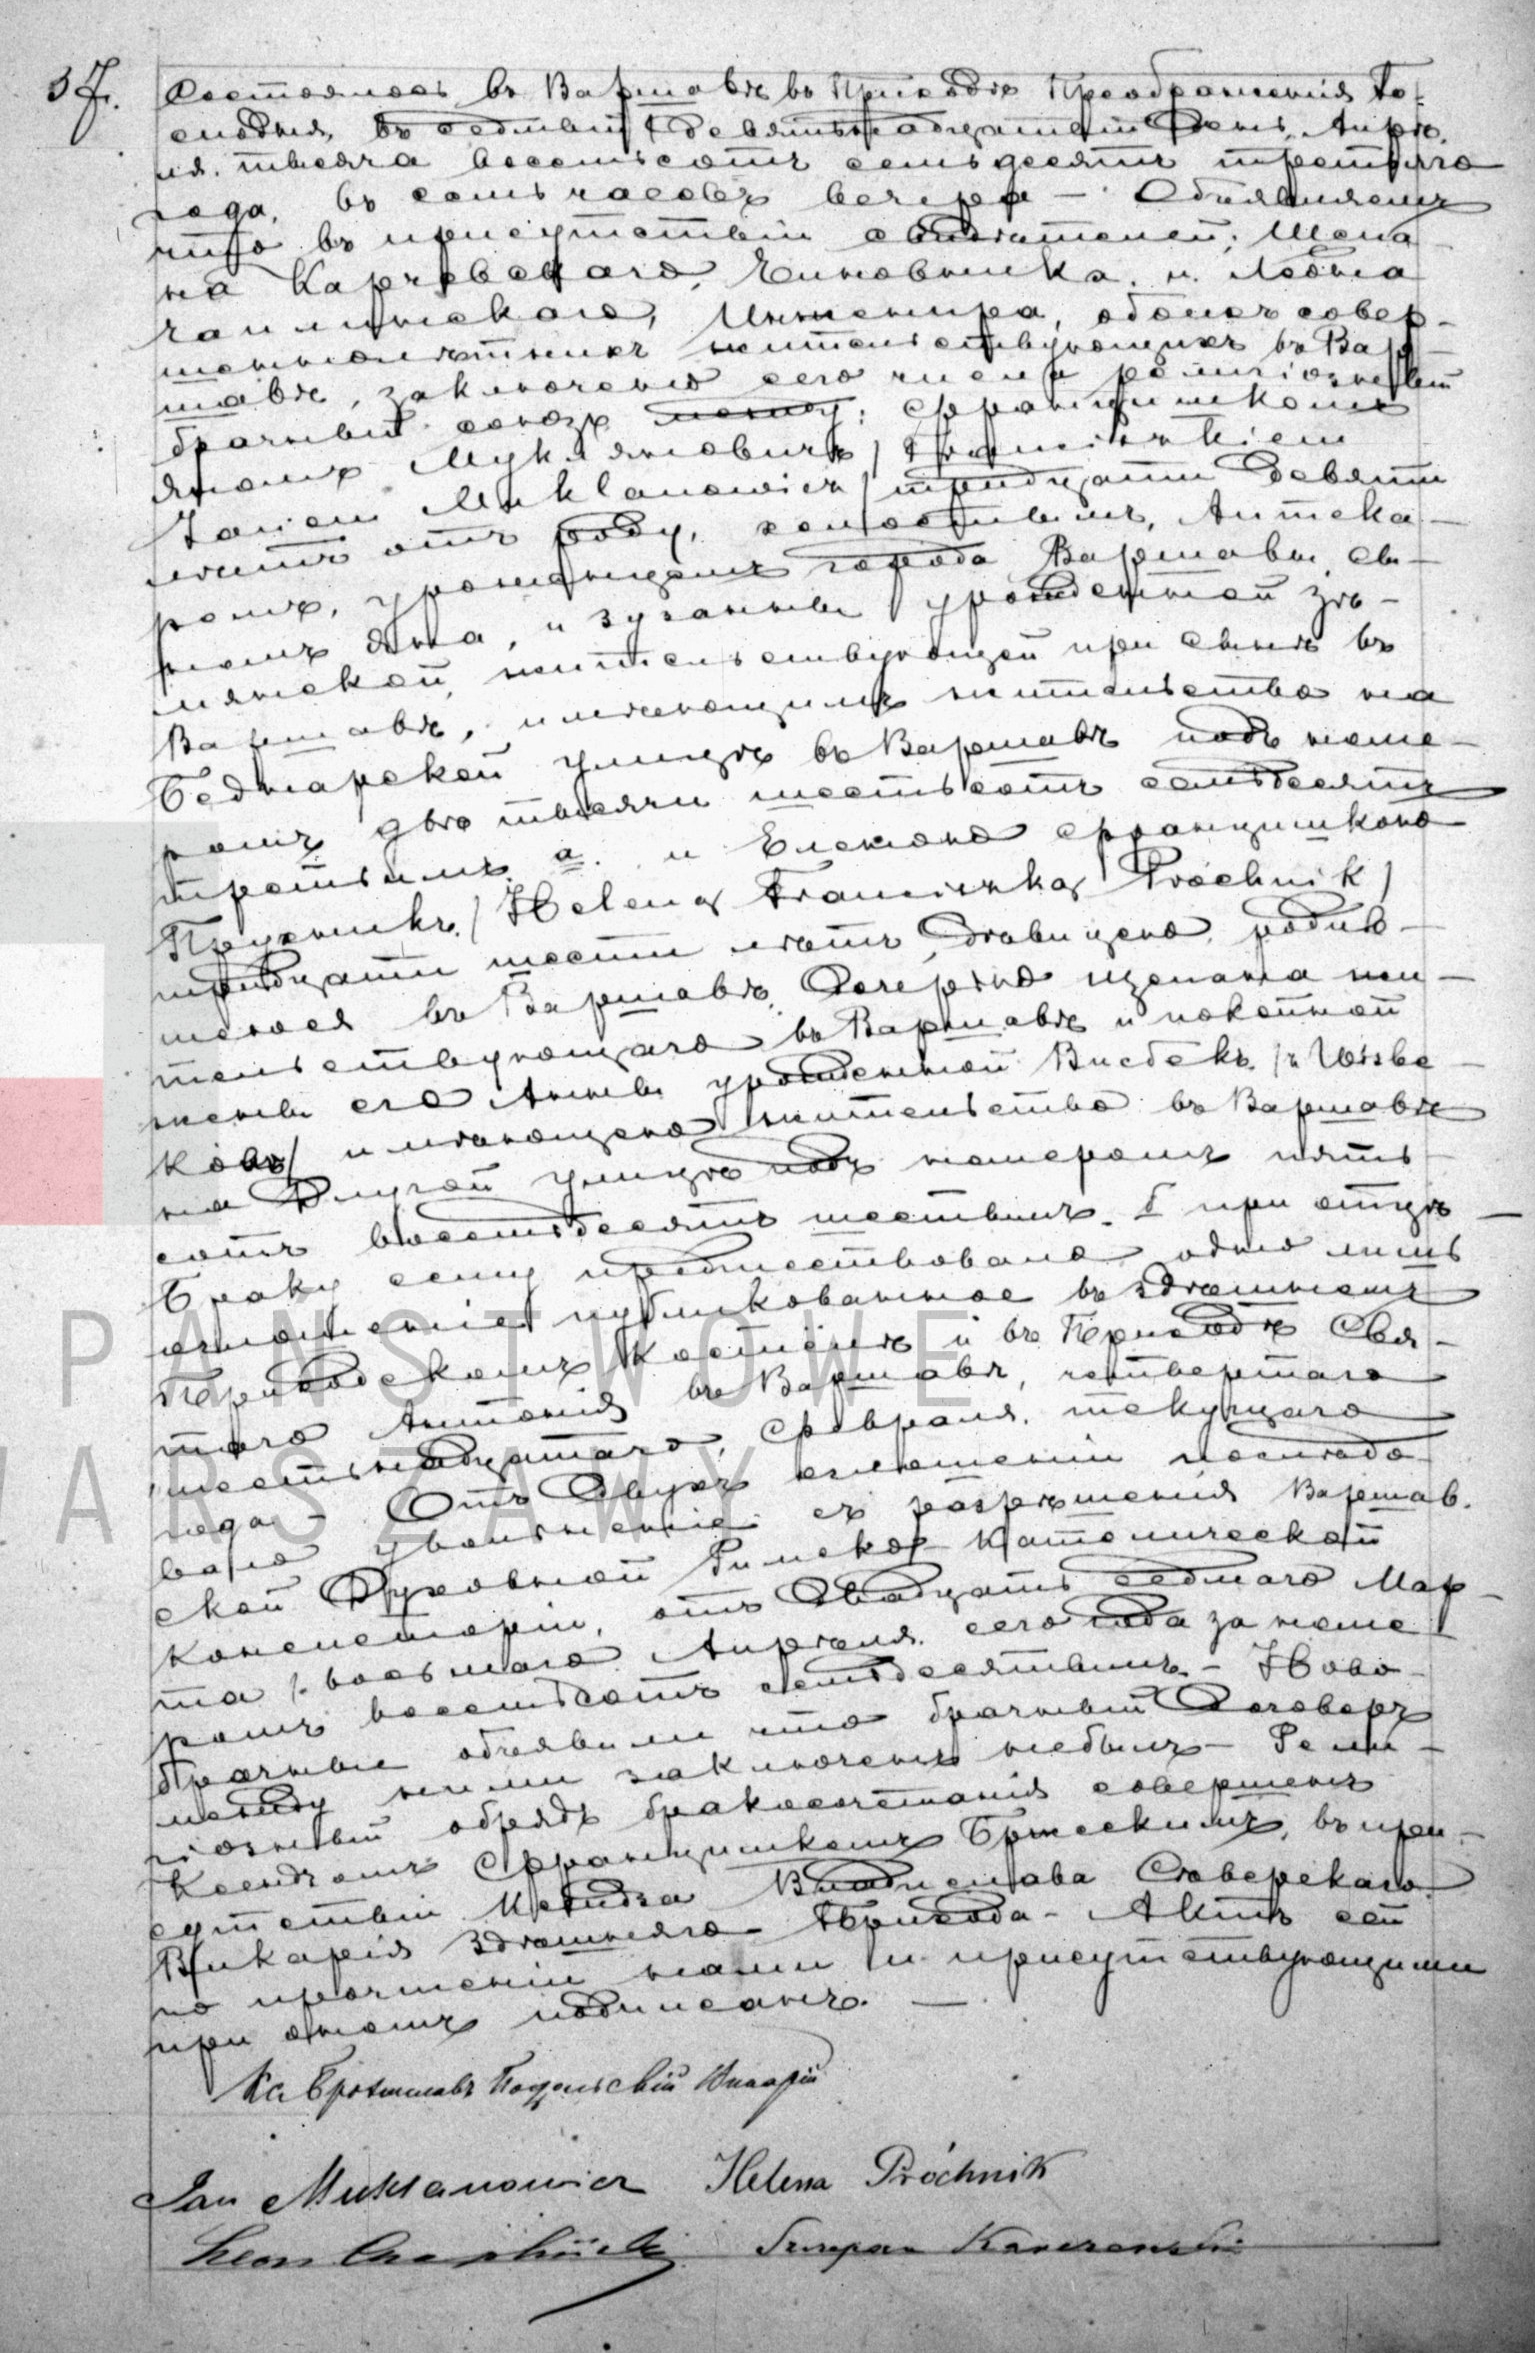 37.
Состоялось въ Варшавѣ въ Приходѣ Преображенія Го-
сподня, въ седьмый /девятнадцатый/ день Апрѣ-
ля тысяча восемьсотъ семьдесятъ третьяго
года, въ семь часовъ вечера — Объявляемъ
что въ присутствіи свидѣтелей: Щепа-
на Карчевскаго, Чиновника, и Леона
Чаплинскаго, Инженера, обоихъ совер-
шеннолѣтнихъ жительствующихъ въ Вар-
шавѣ, заключено сего числа религіозный
брачный союзъ между: Францишкомъ
Яномъ Мукляновичъ /Franciszkiem
Janem Muklanowicz/ тридцати девяти
лѣтъ отъ роду, холостымъ, Аптека-
ремъ, урожденцемъ города Варшавы, сы-
номъ Яна, и Зузанны урожденной Зѣ-
лянской, жительствующей при сынѣ въ
Варшавѣ, имѣющимъ жительство на
Беднарской улицѣ въ Варшавѣ подъ номе-
ромъ двѣ тысячи шестьсотъ семьдесятъ
третьимъ а. и Еленою Францишкою
Прухникъ /Heleną Franciszką Próchnik/
тридцати шести лѣтъ, дѣвицею, родив-
шеюся въ Варшавѣ, дочерью Щепана жи-
тельствующаго въ Варшавѣ и покойной
жены его Анны урожденной Висбекъ /z Wisbe-
ków/ имѣющею жительство въ Варшавѣ
на Длугой улицѣ подъ номеромъ пять-
сотъ восемьдесятъ шестымъ б при отцѣ —
Браку сему предшествовало одно лишь
оглашеніе публикованное въ здѣшнемъ
Приходскомъ Костёлѣ и въ Приходѣ Свя-
таго Антонія въ Варшавѣ, четвертаго
/шестнадцатаго/ Февраля текущаго
года — Отъ двухъ оглашеній послѣдо-
вало увольненіе съ разрѣшенія Варшав-
ской Духовной Римско-Католической
Консисторіи, отъ двадцать седьмаго Мар-
та /: восьмаго Апрѣля сего года за номе-
ромъ восемьсотъ семьдесятымъ — Ново-
брачные объявили что брачный договоръ
между ними заключенъ небылъ — Рели-
гіозный обрядъ бракосочетанія совершенъ
Ксендзомъ Францишкомъ Бржескимъ, въ при-
сутствіи Ксендза Владислава Сѣверскаго
Викарія здѣшняго Прихода — Актъ сей
по прочтеніи нами и присутствующими
при ономъ подписанъ. —
Кс Брониславъ Викарій
Jan Muklanowicz Helena Próchnik
Leon Czapliński Szczepan Karczewski
PAŃSTWOWE
WARSZAWY